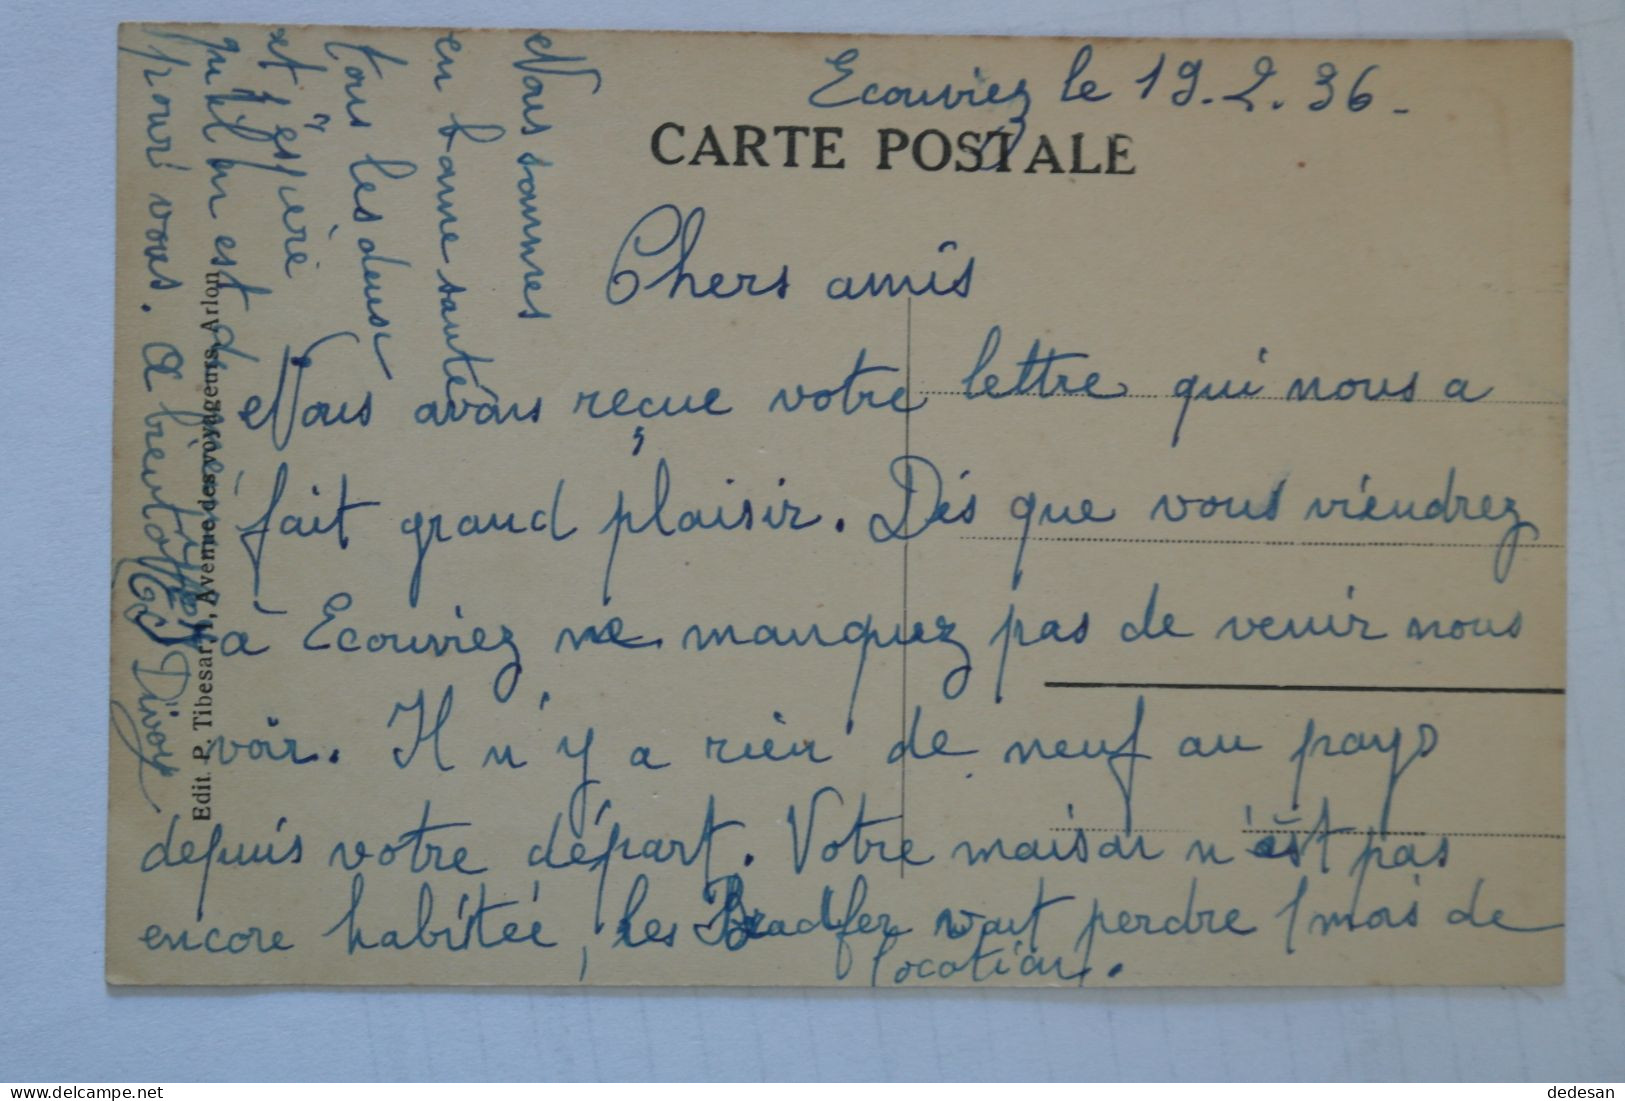 Ecouviez le 19.2.36.
CARTE POSTALE
Chers amis
Nous avons reçue votre lettre qui nous a
fait grand plaisir. Dès que vous viendrez
à Ecouviez ne manquez pas de venir nous
voir. Il n'y a rien de neuf au pays
depuis votre départ. Votre maison n'est pas
encore habitée, les Bradfer vont perdre 1 mois de
location.
Nous sommes
en bonne santé
tous les deux
et j'espère
qu'il en est de
pour vous. A bientôt
Divoy
Edit. P. Tibesar, Avenue des voyageurs, Arlon
dedesan